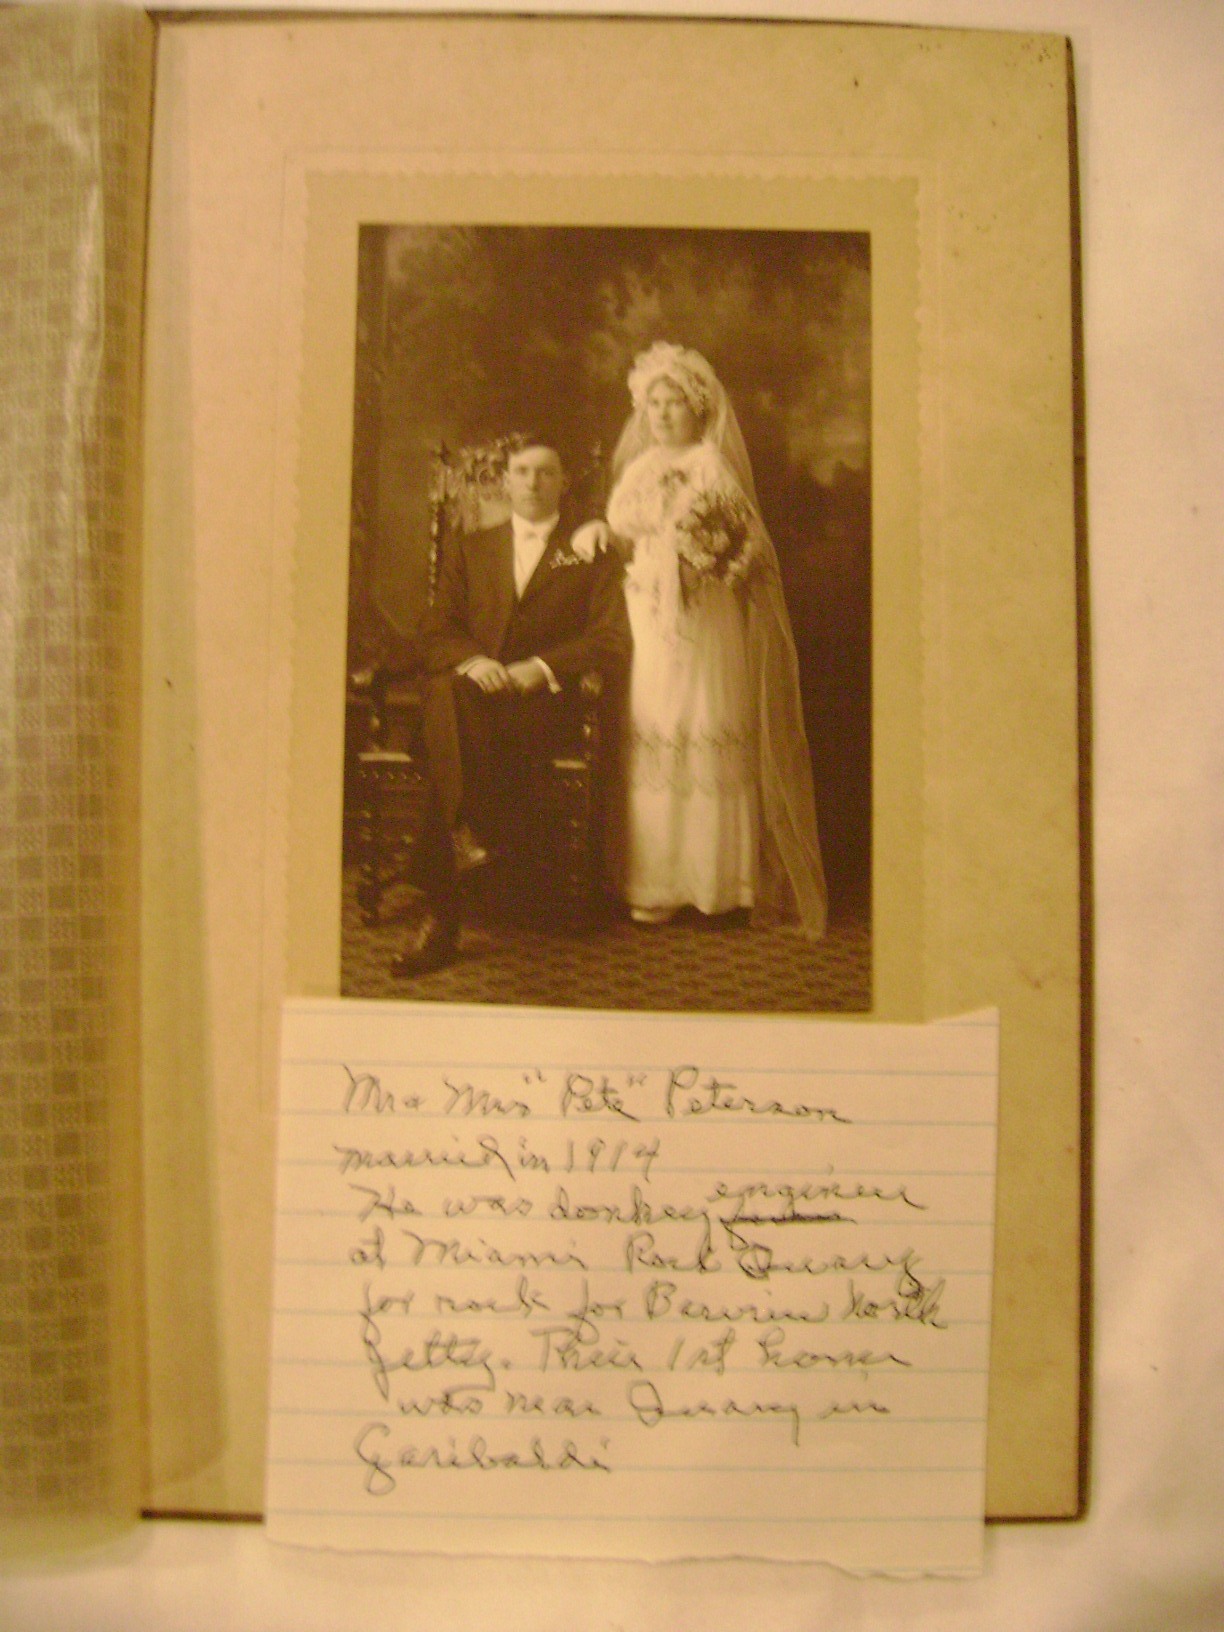 Mr & Mrs "Pete" Peterson
married in 1914
He was donkey engineer
at Miami Rock Quarry
for rock for Barview North
Jetty. Their 1st home
was near Quarry in
Garibaldi